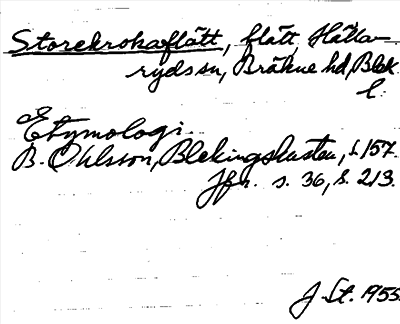 Storekrokaflätt, flätt, Hälla-
ryds sn, Bräkne hd, Blek.
l.
Etymologi.
B. Ohlsson, Blekingskusten, s. 157.
Jfr. s. 36, s. 213.
J St. 1955